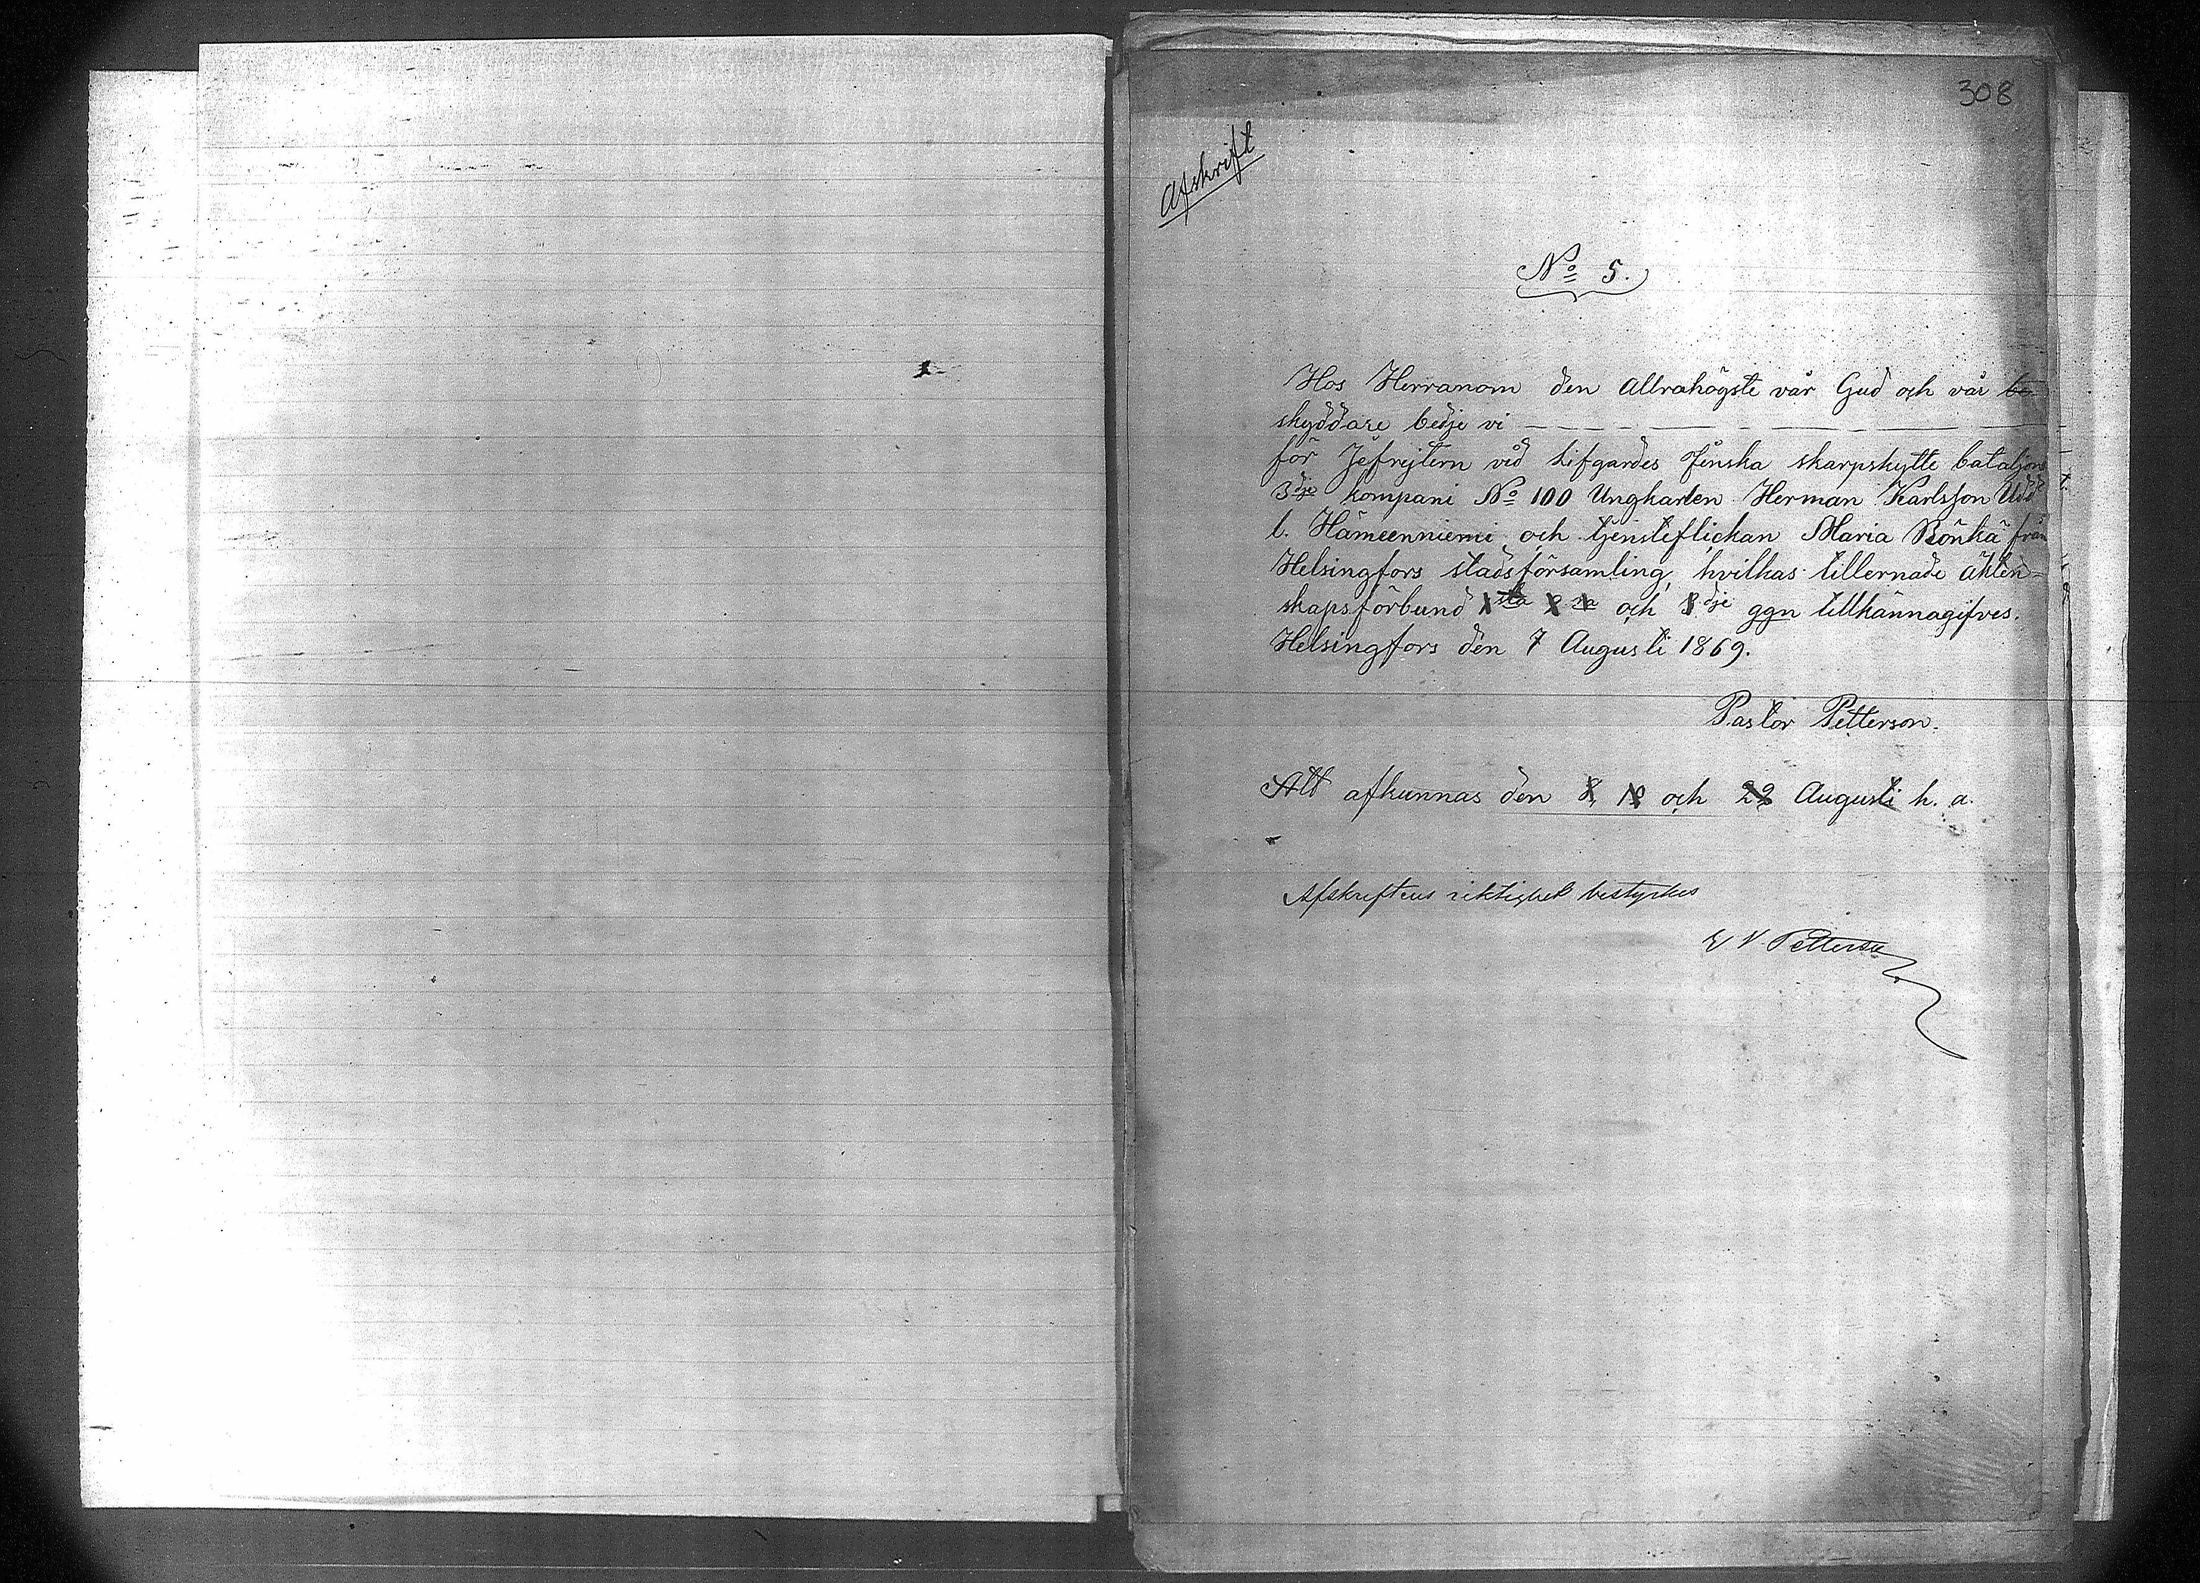 308
Afskrift
No 5.
Hos Herranom den Allrahögste vår Gud och vår be
skyddare bedje vi
för Jefrejtern vid Lifgardes Finska skarpskytte bataljons
3dje kompani No 100 Ungkarlen Herman Karlsson Udd
l. Hämeenniemi och tjensteflickan Maria Rönkä från
Helsingfors stadsförsamling, hvilkas tillernade äkten=
skapsförbund 1sta 2ra och 3dje ggn tillkännagifves.
Helsingfors den 7 Augusti 1869.
Pastor Petterson.
Att afkunnas den 8, och 22 Augusti h. a.
Afskriftens riktighet bestyrkes
E V Petterson